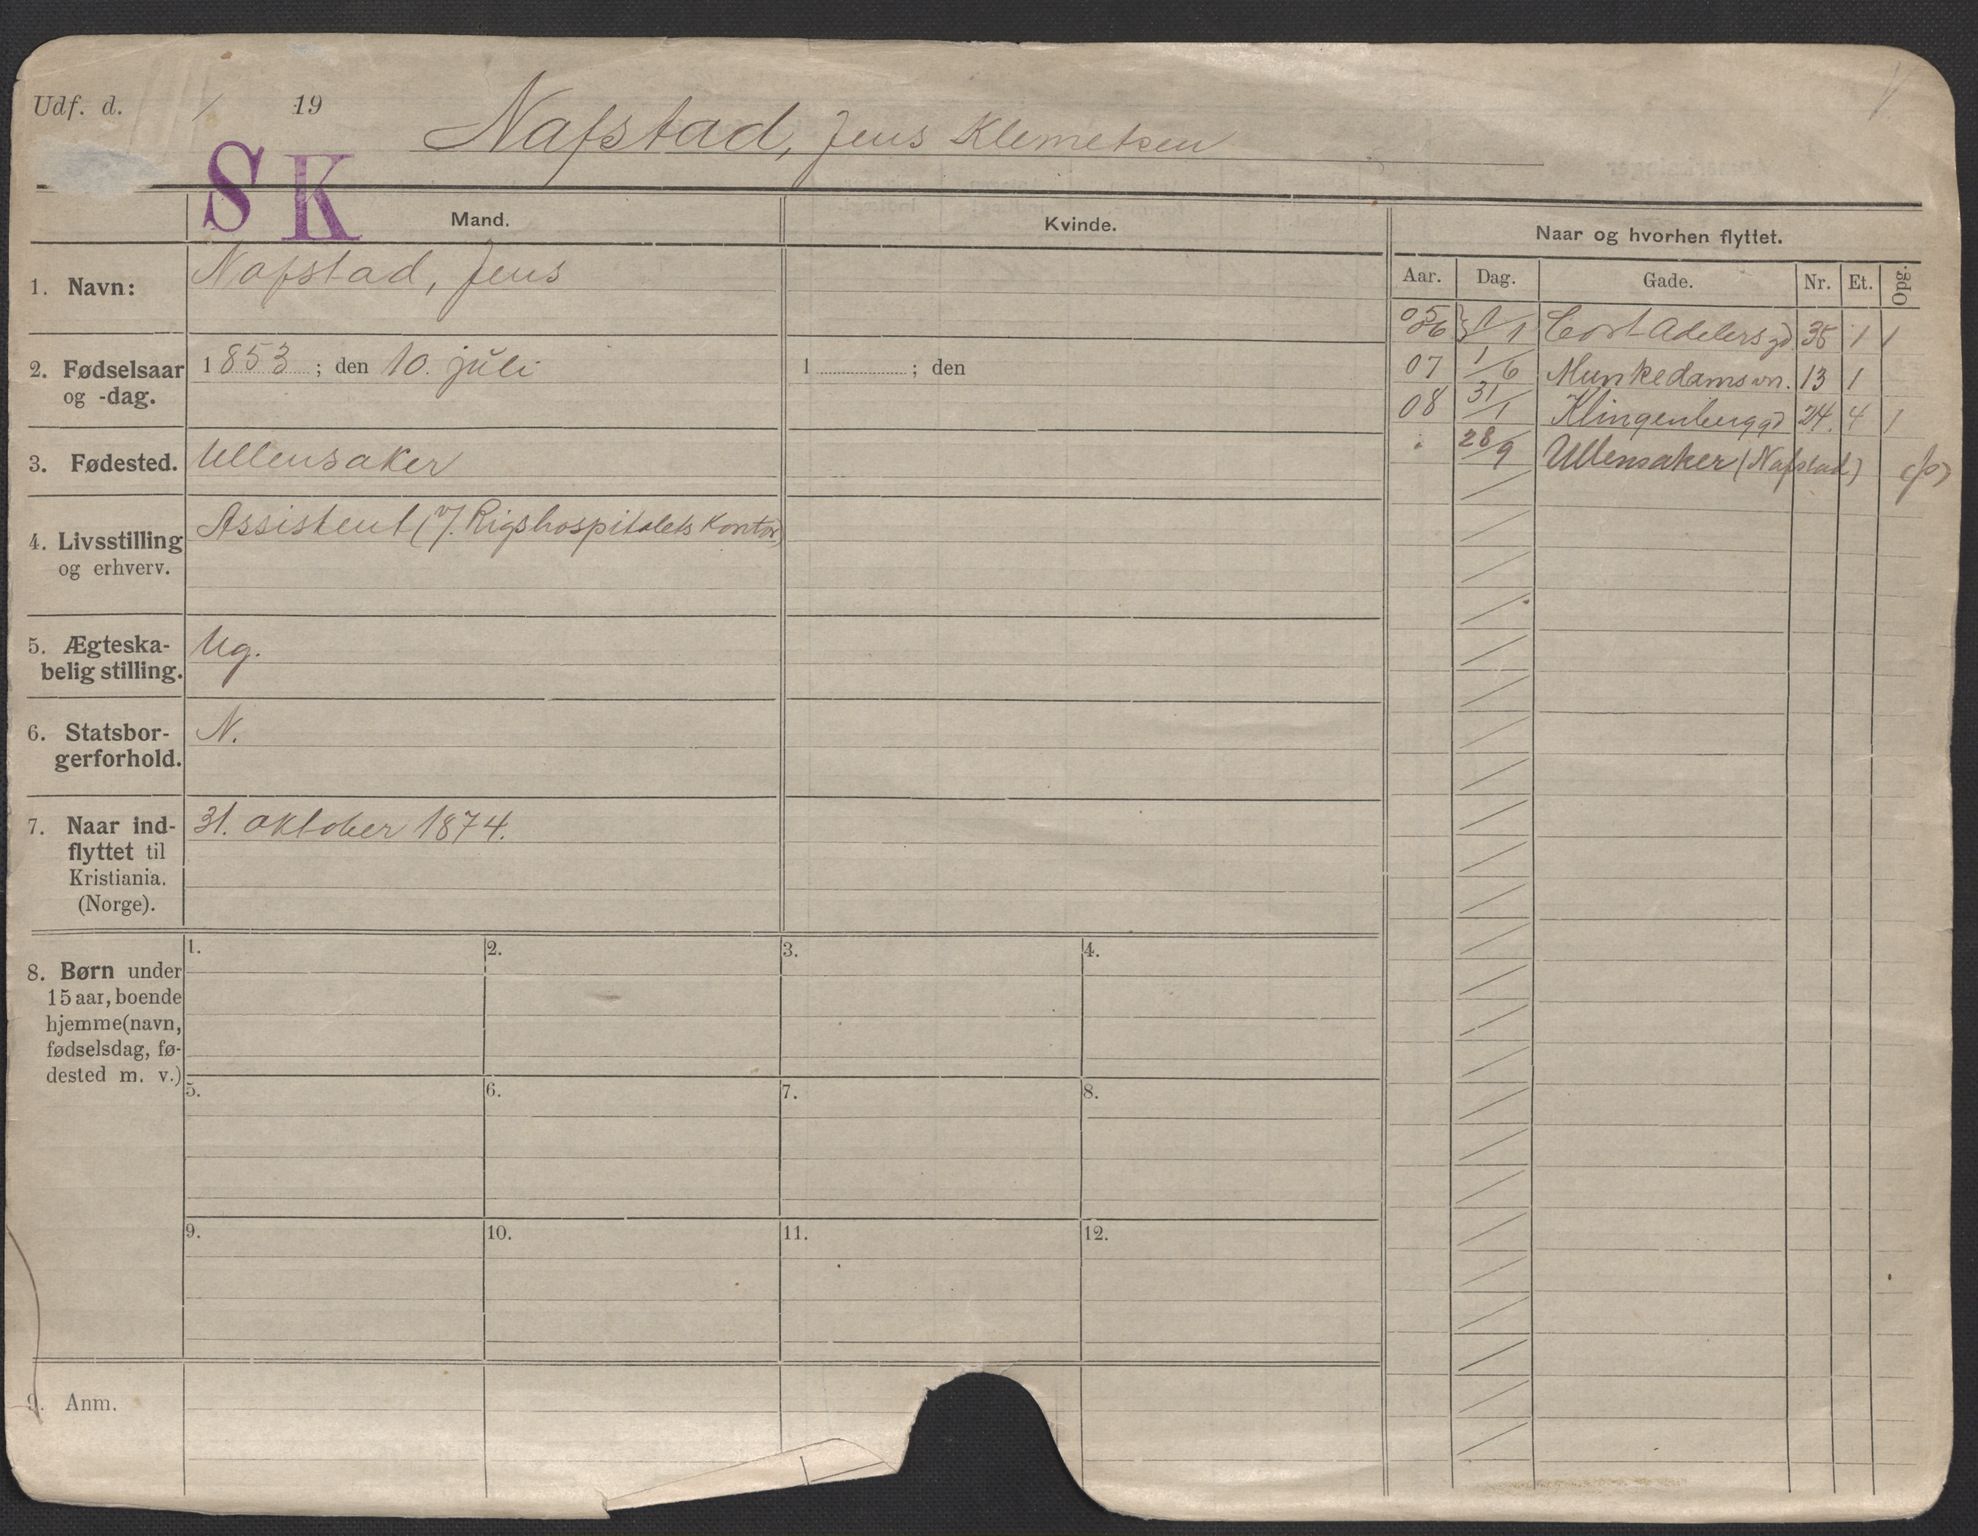 Udf. d. / 19
Nafstad, Jens Klemetsen
SK
Mand.
Kvinde.
Naar og hvorhen flyttet.
Aar. Dag. Gade. Nr. Et. Opg.
1. Navn:
Nafstad, Jens
2. Fødselsaar
og -dag.
1853; den 10. juli
1 ; den
3. Fødested.
Ullensaker
4. Livsstilling
og erhverv.
Assistent (v/. Rigshospitalets Kontor)
5. Ægteska-
belig stilling.
Ug.
6. Statsbor-
gerforhold.
N.
7. Naar ind-
flyttet til
Kristiania.
(Norge).
31. oktober 1874.
8. Børn under
15 aar, boende
hjemme (navn,
fødselsdag, fø-
dested m. v.)
1. 2. 3. 4.
5. 6. 7. 8.
9. 10. 11. 12.
9. Anm.
05
06 } 1/1 Cort Adelersgd 35 1 1
07 1/6 Munkedamsvn. 13 1
08 31/1 Klingenberggd 24. 4 1
" 28/9 Ullensaker (Nafstad)